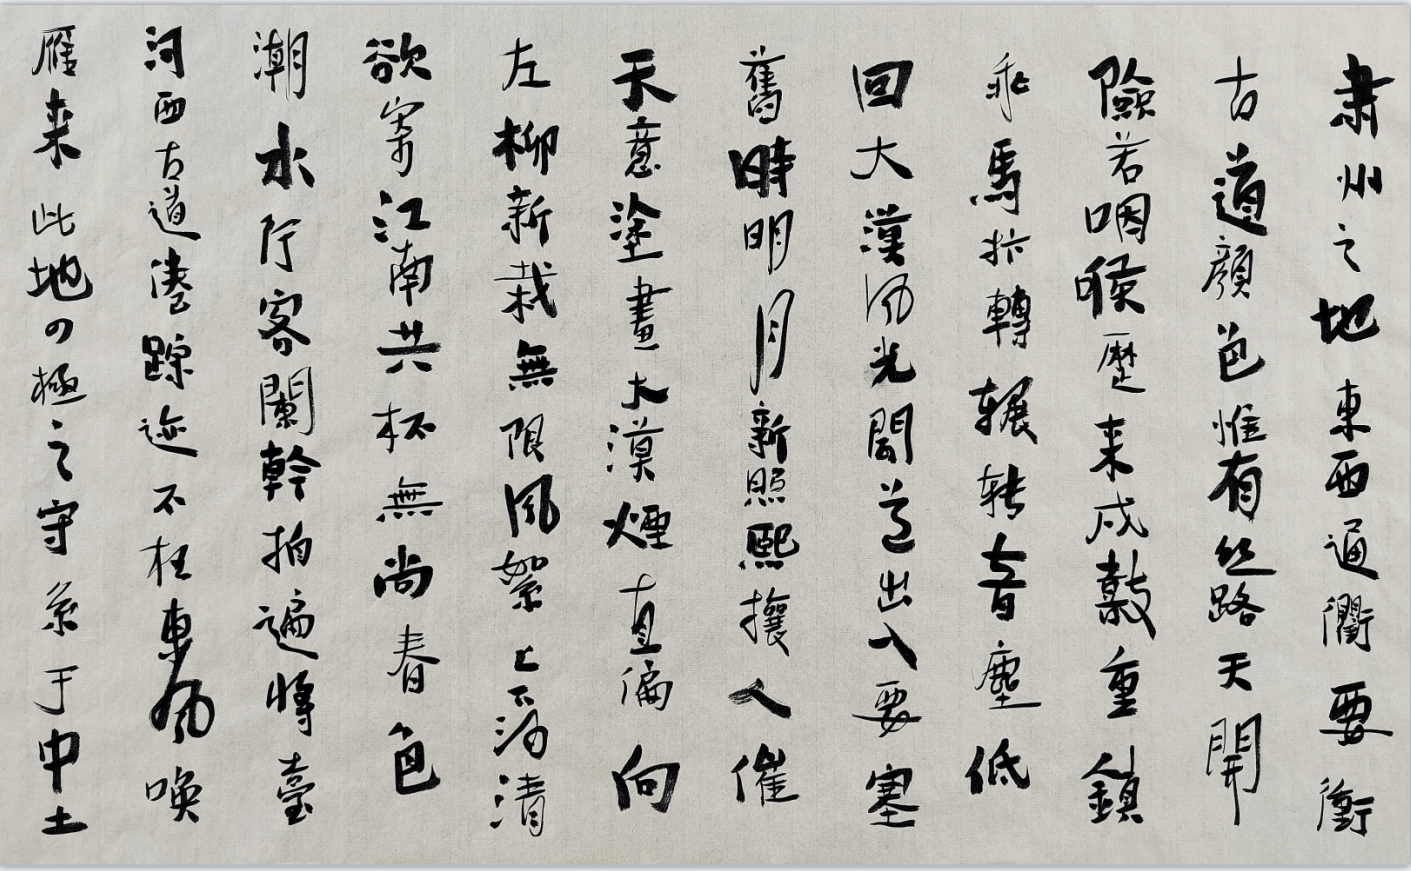 肃州之地東西通衢要衝
古道顔色惟有丝路天開
險若咽喉歷来戍敲重鎮
乖馬拚轉輾转音塵低
回大漠风光聞道出入要塞
舊時明月新照熙攘人催
天意塗畫大漠煙直偏向
左柳新栽無限風絮上下泻清
欲寄江南共杯無尚春色
潮水行客闌幹拍遍將臺
河西古道淹踪迹不枉東风唤
雁来此地四極之守系于中土